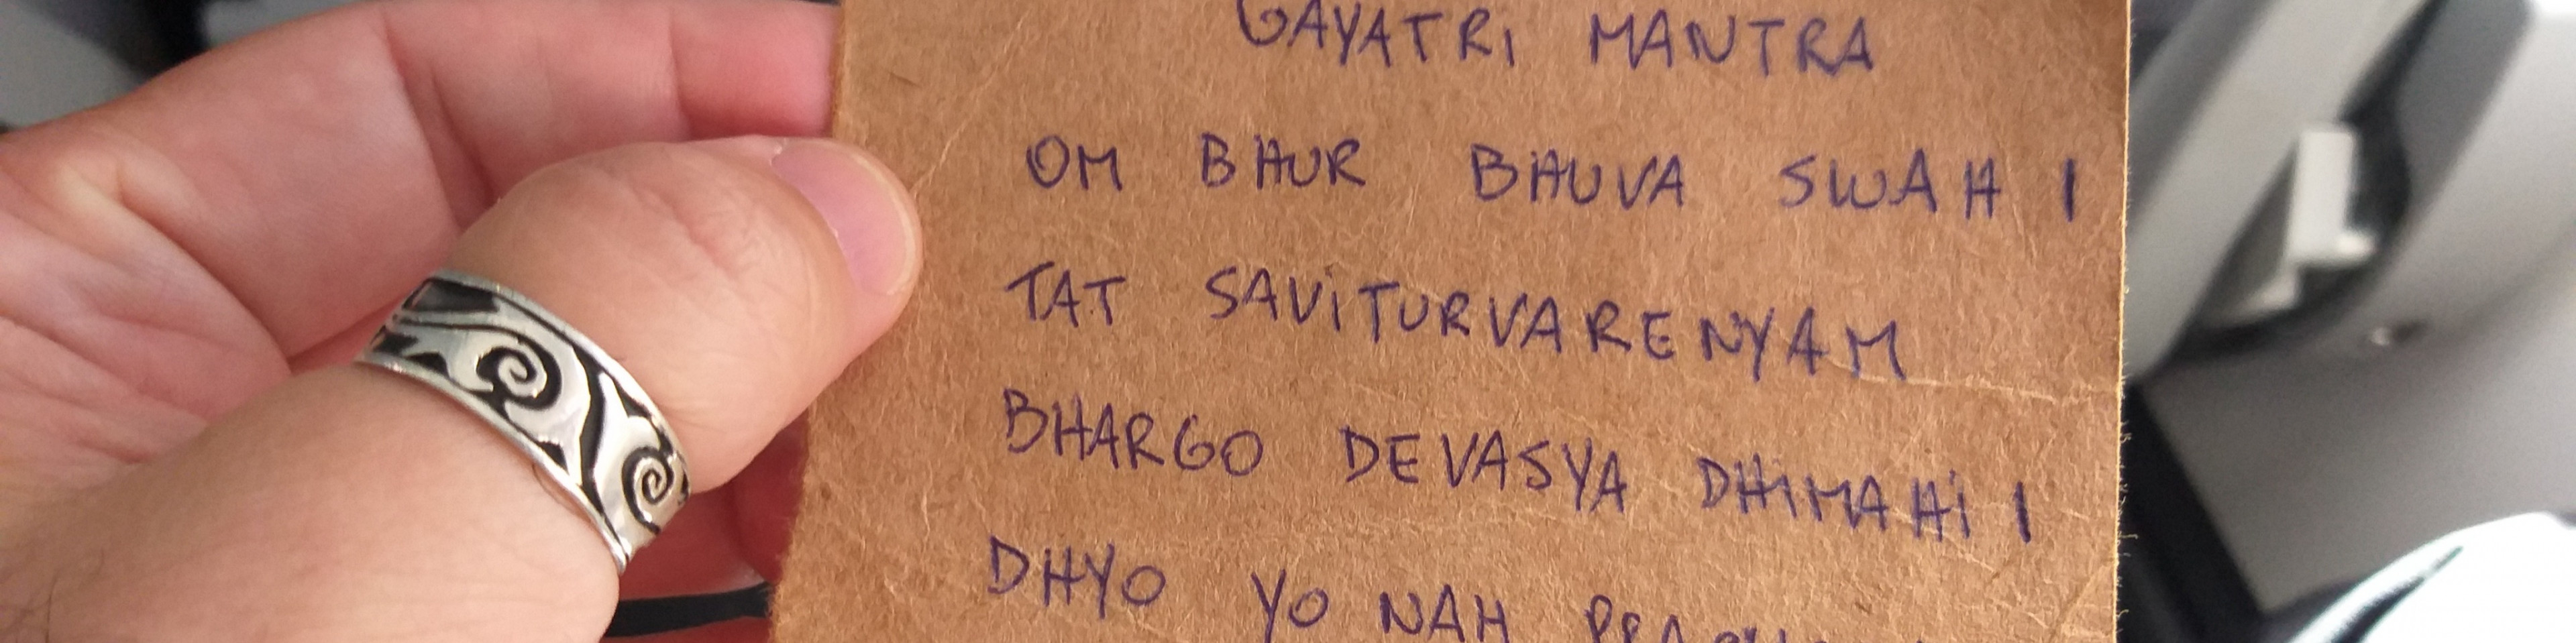 GAYATRi MANTRA
OM BHUR BHUVA SWAH I
TAT SAViTURVARENYAM
BHARGO DEVASYA DHiMAHi I
DHYO YO NAH